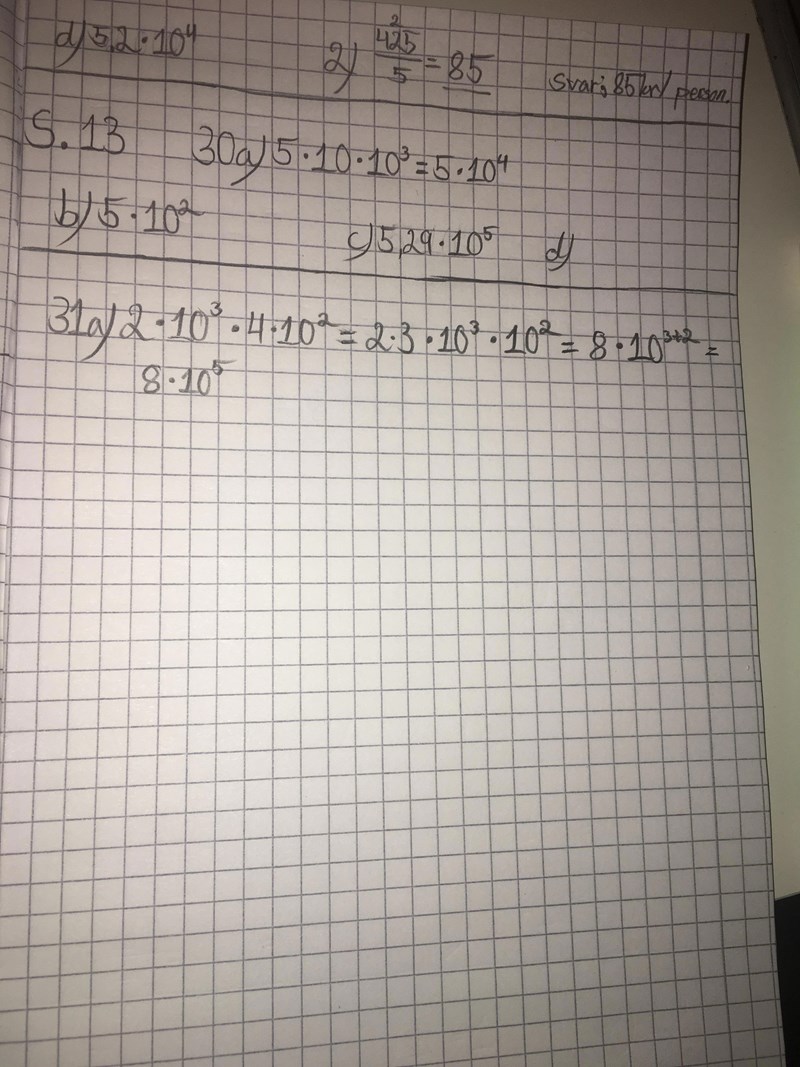 d) 5,2·10⁴ 2) 425/5 = 85 Svar: 85 kr/person.
2
S. 13 30a) 5·10·10³=5·10⁴
b) 5·10² c) 5,29·10⁵ d)
31a) 2·10³·4·10² = 2·3·10³·10² = 8·10³⁺² =
8·10⁵